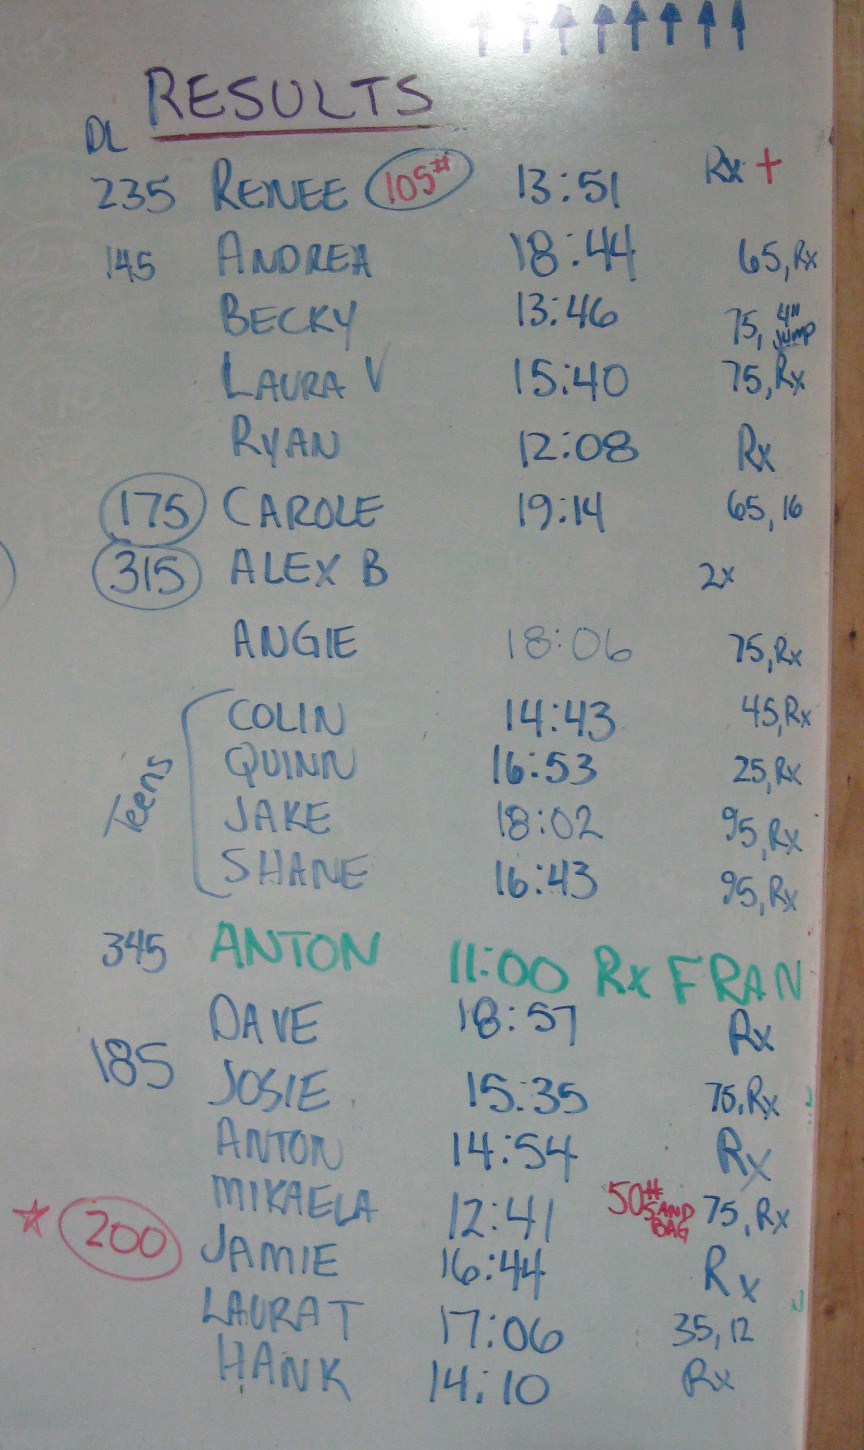 RESULTS
DL
235 RENEE 105# 13:51 Rx +
145 ANDREA 18:44 65, Rx
BECKY 13:46 75, 4" JUMP
LAURA V 15:40 75, Rx
RYAN 12:08 Rx
175 CAROLE 19:14 65, 16
315 ALEX B 2x
ANGIE 18:06 75, Rx
Teens
COLIN 14:43 45, Rx
QUINN 16:53 25, Rx
JAKE 18:02 95, Rx
SHANE 16:43 95, Rx
345 ANTON 11:00 Rx FRAN
DAVE 18:57 Rx
185 JOSIE 15:35 75, Rx
ANTON 14:54 Rx
MIKAELA 12:41 50# SAND BAG 75, Rx
200 JAMIE 16:44 Rx
LAURA T 17:06 35, 12
HANK 14:10 Rx